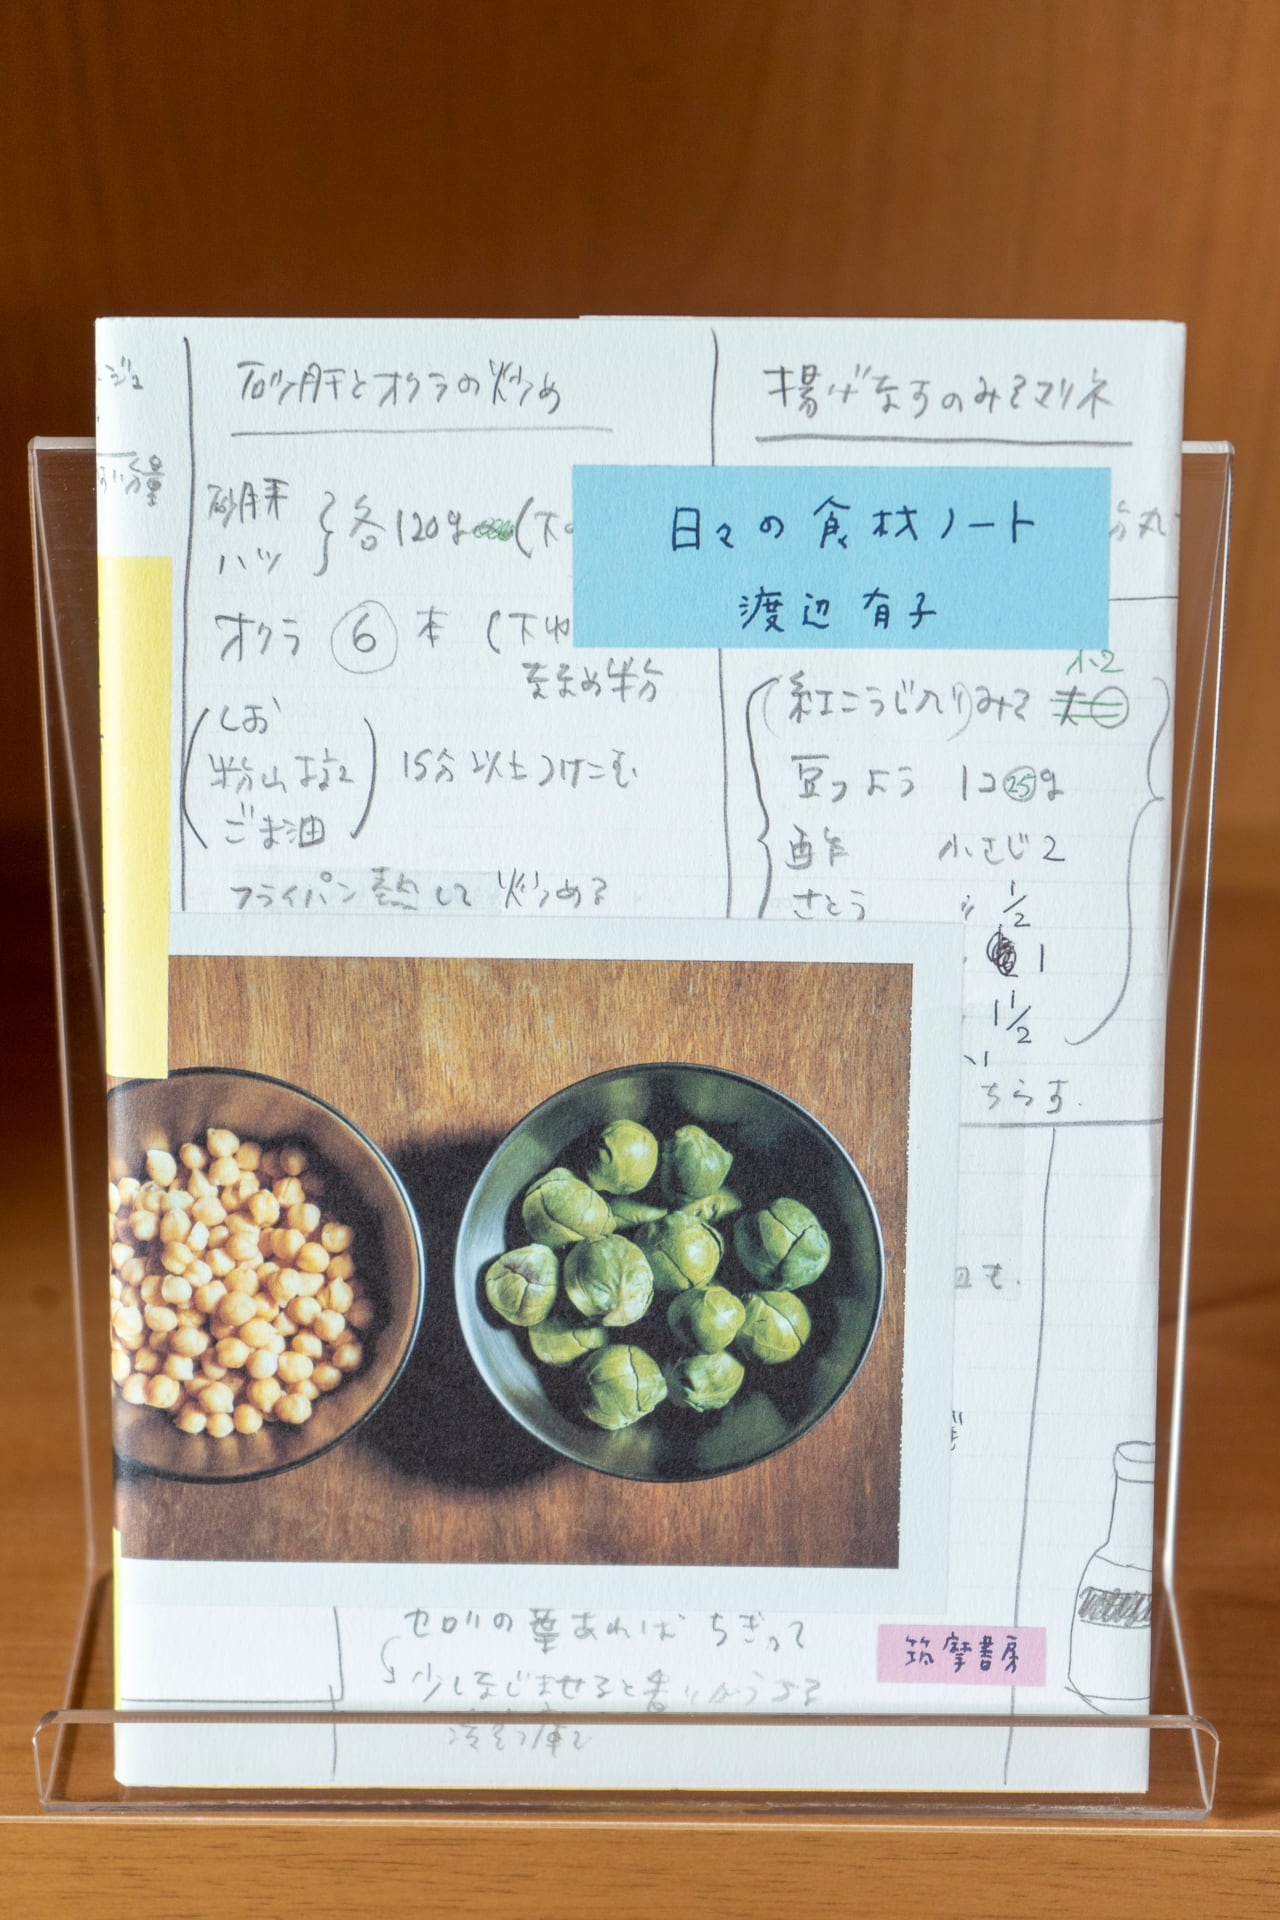 砂肝とオクラの炒め
砂肝
ハツ
各120g
オクラ ⑥ 本 (下ゆ
ななめ半分
しお
粉山椒
ごま油
15分以上つけこむ
フライパン熱して 炒める
揚げなすのみそマリネ
日々の食材ノート
渡辺 有子
小2
(紅こうじ入り)みそ
酢 小さじ2
さとう 〃 1/2
1
1 1/2
ちらす.
セロリの葉あれば ちぎって
少しなじませると香りがうつる
冷蔵庫で
筑摩書房